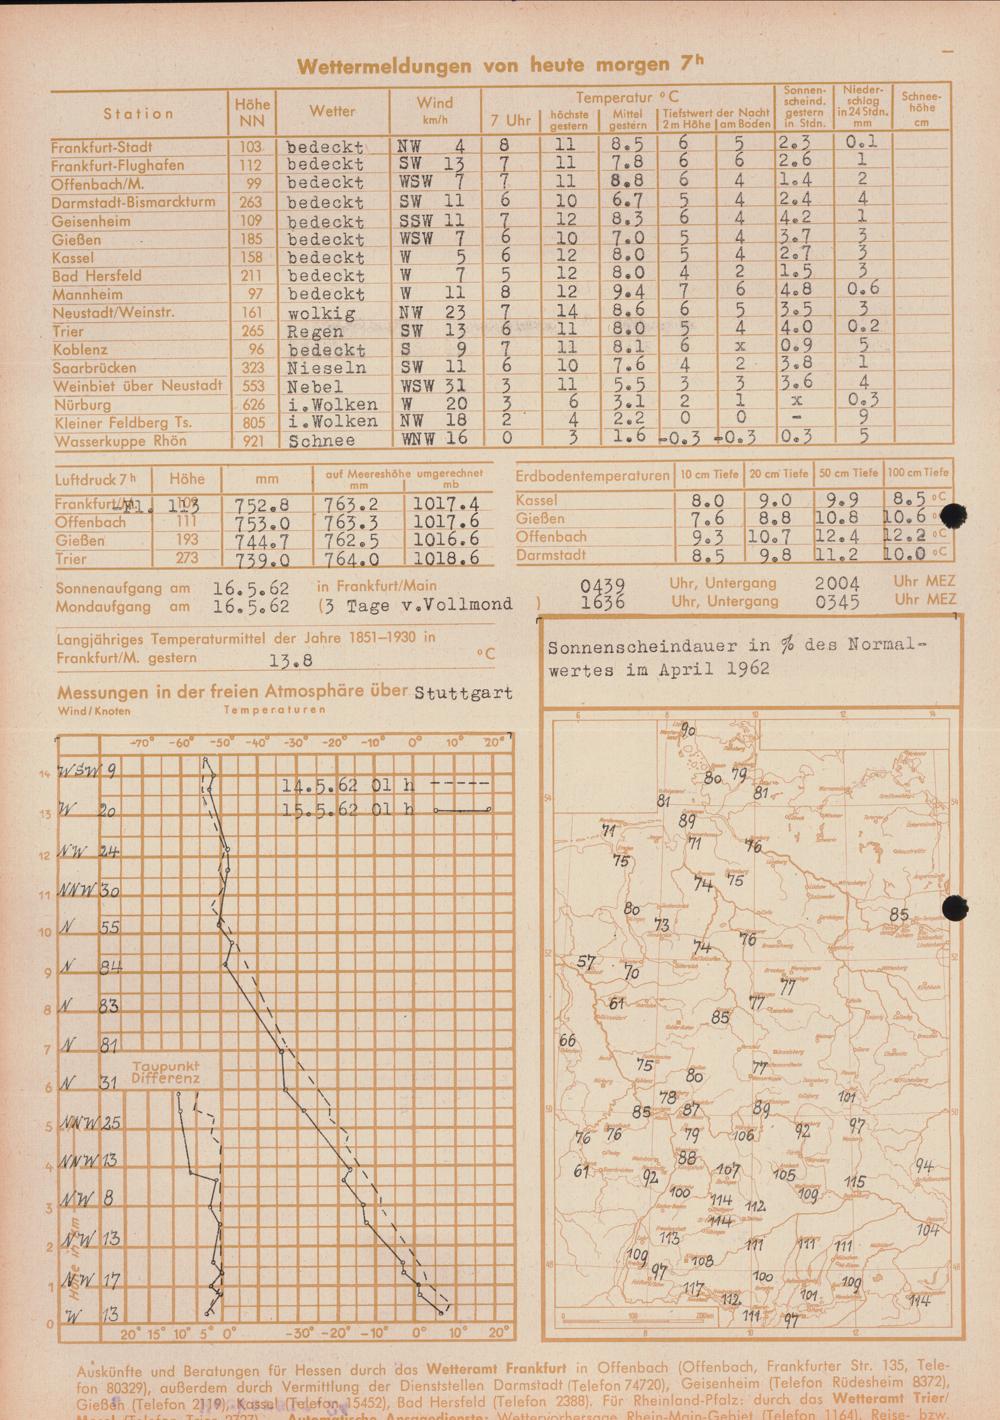 Wettermeldungen von heute morgen 7h
Station Höhe NN Wetter Wind km/h Temperatur °C 7 Uhr höchste gestern Mittel gestern Tiefstwert der Nacht 2 m Höhe am Boden Sonnenscheind. gestern in Stdn. Niederschlag in 24 Stdn. mm Schneehöhe cm
Frankfurt-Stadt 103 bedeckt NW 4 8 11 8.5 6 5 2.3 0.1
Frankfurt-Flughafen 112 bedeckt SW 13 7 11 7.8 6 6 2.6 1
Offenbach/M. 99 bedeckt WSW 7 7 11 8.8 6 4 1.4 2
Darmstadt-Bismarckturm 263 bedeckt SW 11 6 10 6.7 5 4 2.4 4
Geisenheim 109 bedeckt SSW 11 7 12 8.3 6 4 4.2 1
Gießen 185 bedeckt WSW 7 6 10 7.0 5 4 3.7 3
Kassel 158 bedeckt W 5 6 12 8.0 5 4 2.7 3
Bad Hersfeld 211 bedeckt W 7 5 12 8.0 4 2 1.5 3
Mannheim 97 bedeckt W 11 8 12 9.4 7 6 4.8 0.6
Neustadt/Weinstr. 161 wolkig NW 23 7 14 8.6 6 5 3.5 3
Trier 265 Regen SW 13 6 11 8.0 5 4 4.0 0.2
Koblenz 96 bedeckt S 9 7 11 8.1 6 x 0.9 5
Saarbrücken 323 Nieseln SW 11 6 10 7.6 4 2 3.8 1
Weinbiet über Neustadt 553 Nebel WSW 31 3 11 5.5 3 3 3.6 4
Nürburg 626 i.Wolken W 20 3 6 3.1 2 1 x 0.3
Kleiner Feldberg Ts. 805 i.Wolken NW 18 2 4 2.2 0 0 - 9
Wasserkuppe Rhön 921 Schnee WNW 16 0 3 1.6 -0.3 -0.3 0.3 5
Luftdruck 7h Höhe mm auf Meereshöhe umgerechnet mm mb
Frankfurt/M.-Fl. 113 752.8 763.2 1017.4
Offenbach 111 753.0 763.3 1017.6
Gießen 193 744.7 762.5 1016.6
Trier 273 739.0 764.0 1018.6
Erdbodentemperaturen 10 cm Tiefe 20 cm Tiefe 50 cm Tiefe 100 cm Tiefe
Kassel 8.0 9.0 9.9 8.5 °C
Gießen 7.6 8.8 10.8 10.6 °C
Offenbach 9.3 10.7 12.4 12.2 °C
Darmstadt 8.5 9.8 11.2 10.0 °C
Sonnenaufgang am 16.5.62 in Frankfurt/Main 0439 Uhr, Untergang 2004 Uhr MEZ
Mondaufgang am 16.5.62 (3 Tage v.Vollmond ) 1636 Uhr, Untergang 0345 Uhr MEZ
Langjähriges Temperaturmittel der Jahre 1851–1930 in
Frankfurt/M. gestern 13.8 °C
Messungen in der freien Atmosphäre über Stuttgart
Wind/Knoten Temperaturen
-70° -60° -50° -40° -30° -20° -10° 0° 10° 20°
14.5.62 01 h
15.5.62 01 h
14 WSW 9
13 W 20
12 NW 24
11 NNW 30
10 N 55
9 N 84
8 N 83
7 N 81
6 N 31
5 NNW 25
4 NNW 13
3 NW 8
2 NW 13
1 NW 17
0 W 13
Taupunkt
Differenz
Höhe in km
20° 15° 10° 5° 0° -30° -20° -10° 0° 10° 20°
Sonnenscheindauer in % des Normal-
wertes im April 1962
6 8 10 12 14
90
80 79
81 81
89
71 71 76
75
74 75
80 73 85
74 76
57 70
77
61 77
85
66
75 80 77
78 101
85 87 89
76 76 79 106 92 97
88
61 92 107 105 94
100 109 115
114 112
114 104
113 111 111 111
109 97 108
100 109
117 112 101 114
111 97
8 12
Auskünfte und Beratungen für Hessen durch das Wetteramt Frankfurt in Offenbach (Offenbach, Frankfurter Str. 135, Tele-
fon 80329), außerdem durch Vermittlung der Dienststellen Darmstadt (Telefon 74720), Geisenheim (Telefon Rüdesheim 8372),
Gießen (Telefon 2119), Kassel (Telefon 15452), Bad Hersfeld (Telefon 2388). Für Rheinland-Pfalz: durch das Wetteramt Trier/
Mosel (Telefon Trier 2727). Automatische Ansagedienste: Wettervorhersage Rhein-Main-Gebiet (Telefon 1164), Reise- bzw.